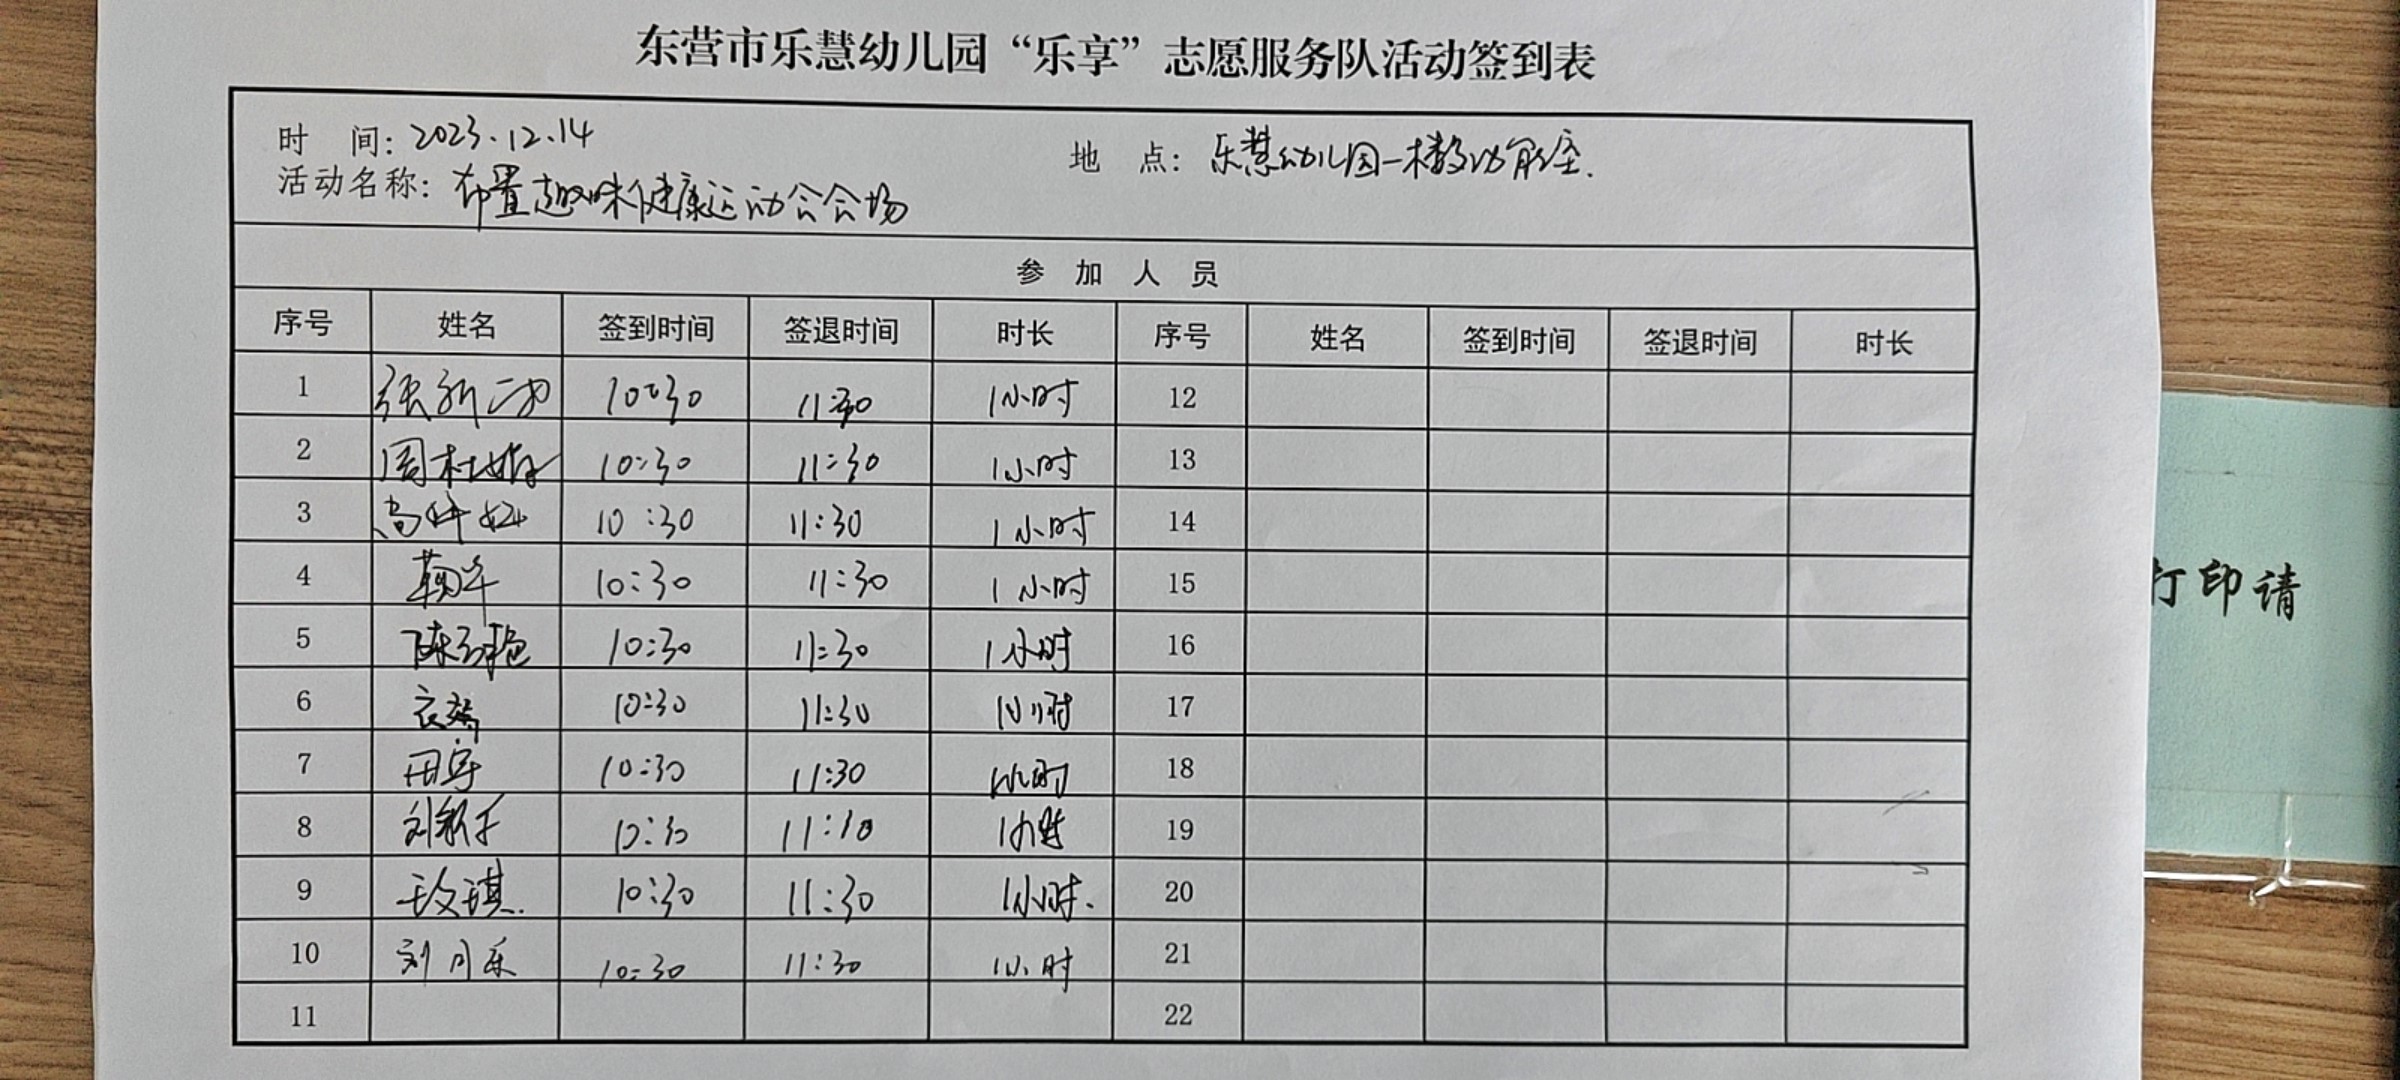 东营市乐慧幼儿园“乐享”志愿服务队活动签到表
时 间：2023.12.14 地 点：乐慧幼儿园一楼多功能室.
活动名称：布置趣味健康运动会会场
参 加 人 员
序号 姓名 签到时间 签退时间 时长 序号 姓名 签到时间 签退时间 时长
1 10:30 11:30 1小时 12
2 10:30 11:30 1小时 13
3 10:30 11:30 1小时 14
4 10:30 11:30 1小时 15
5 10:30 11:30 1小时 16
6 10:30 11:30 1小时 17
7 田宇 10:30 11:30 1小时 18
8 10:30 11:30 1小时 19
9 10:30 11:30 1小时. 20
10 刘月乐 10:30 11:30 1小时 21
11 22
打印请